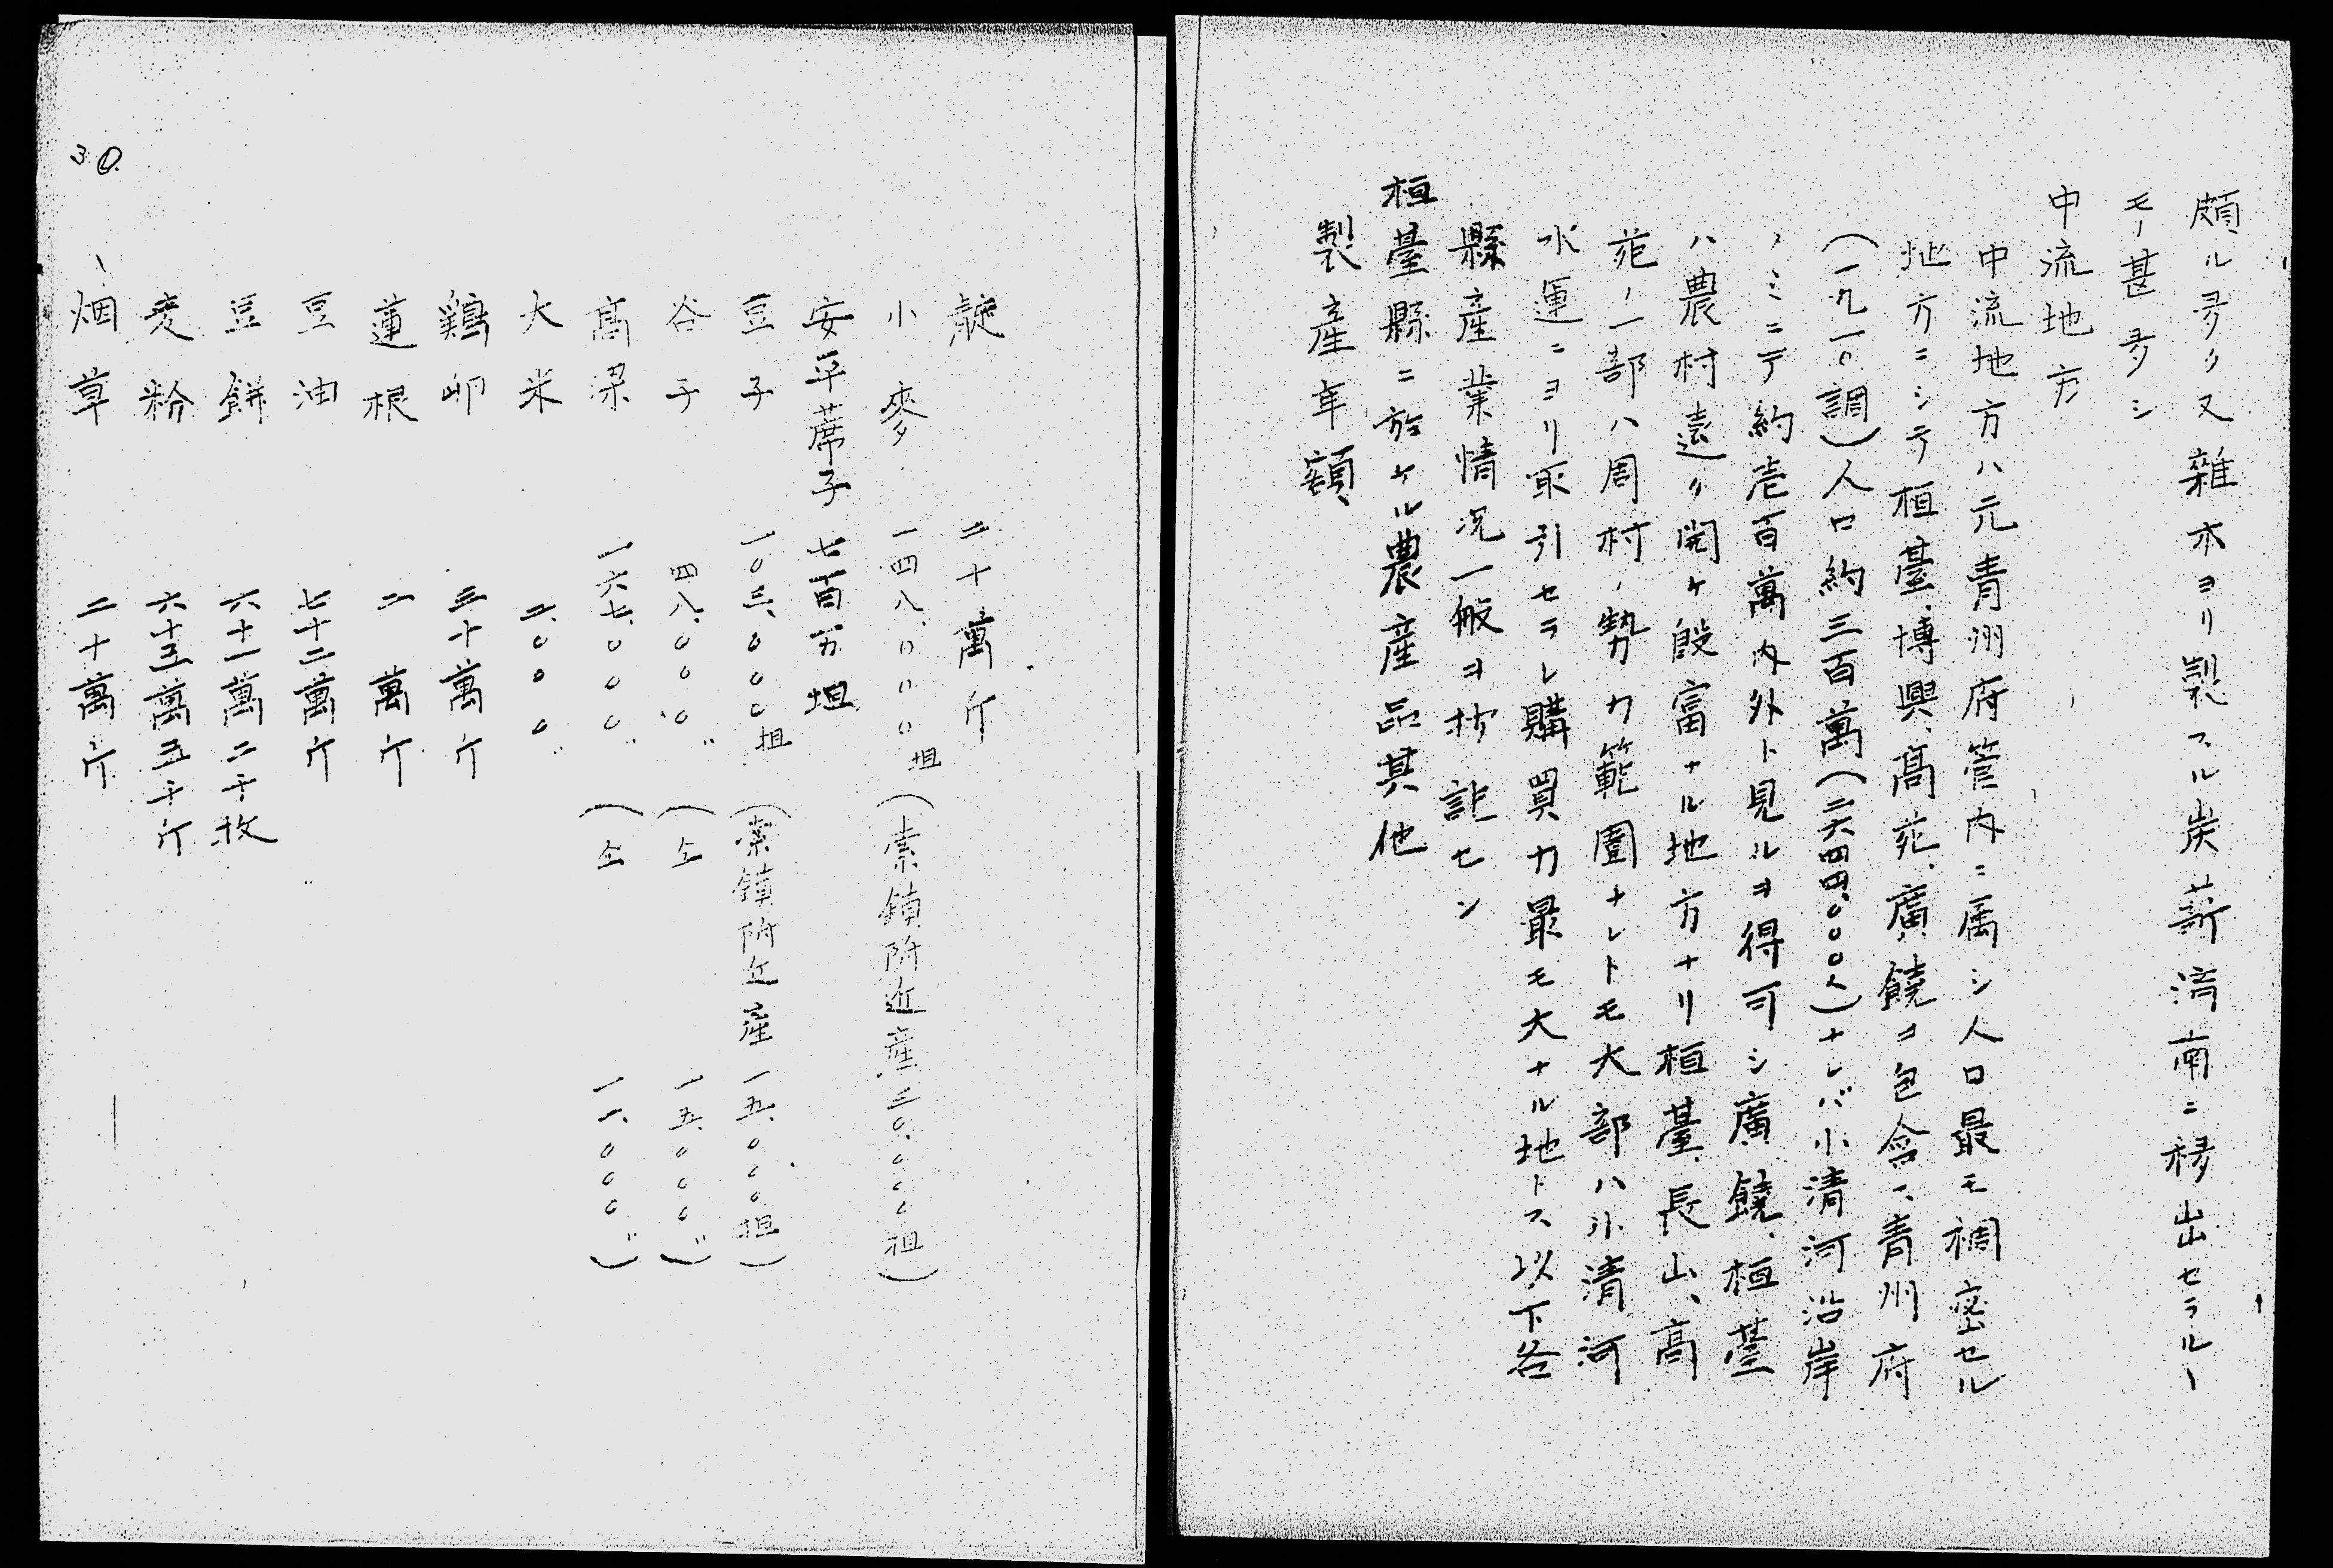 頗ル多ク又雑木ヨリ製スル炭薪済南ニ移出セラルヽ
モノ甚多シ
中流地方
中流地方ハ元青州府管内ニ属シ人口最モ稠密セル
地方ニシテ桓臺、博興、高苑、廣饒ヲ包含ス、青州府
(一九一〇調)人口約三百萬(二六四四、〇〇〇人)ナレバ小清河沿岸
ノミニテ約壱百萬内外ト見ルヲ得可シ廣饒、桓臺
ハ農村遠ク開ケ殷富ナル地方ナリ桓臺、長山、高
苑ノ一部ハ周村ノ勢力範圍ナレトモ大部ハ小清河
水運ニヨリ取引セラレ購買力最モ大ナル地トス以下各
縣産業情況一般ヲ抄記セン
桓臺縣ニ於ケル農産品其他
製産年額、
靛 二十萬斤
小麥 一四八、〇〇〇担 (索鎮附近産 三〇、〇〇〇担)
安平蓆子 七百万担
豆子 一〇三、〇〇〇担 (索鎮附近産 一五、〇〇〇担)
谷子 四八、〇〇〇〃 (仝 一五、〇〇〇〃)
高梁 一六七、〇〇〇〃 (仝 一一、〇〇〇〃)
大米 二、〇〇〇〃
鶏卵 三十萬斤
蓮根 二萬斤
豆油 七十二萬斤
豆餅 六十一萬二千枚
麦粉 六十三萬五千斤
烟草 二十萬斤
30.